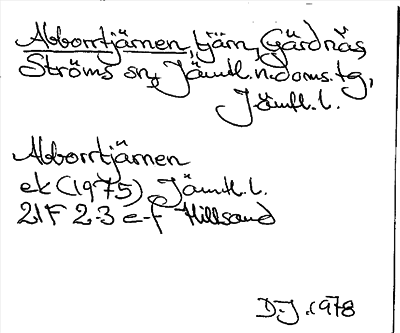 Abborrtjärnen, tjärn, Gärdnäs,
Ströms sn, Jämtl. n. doms. tg,
Jämtl. l.
Abborrtjärnen
ek (1975), Jämtl. l.
21F 2-3 e-f Hillsand
D.J. 1978